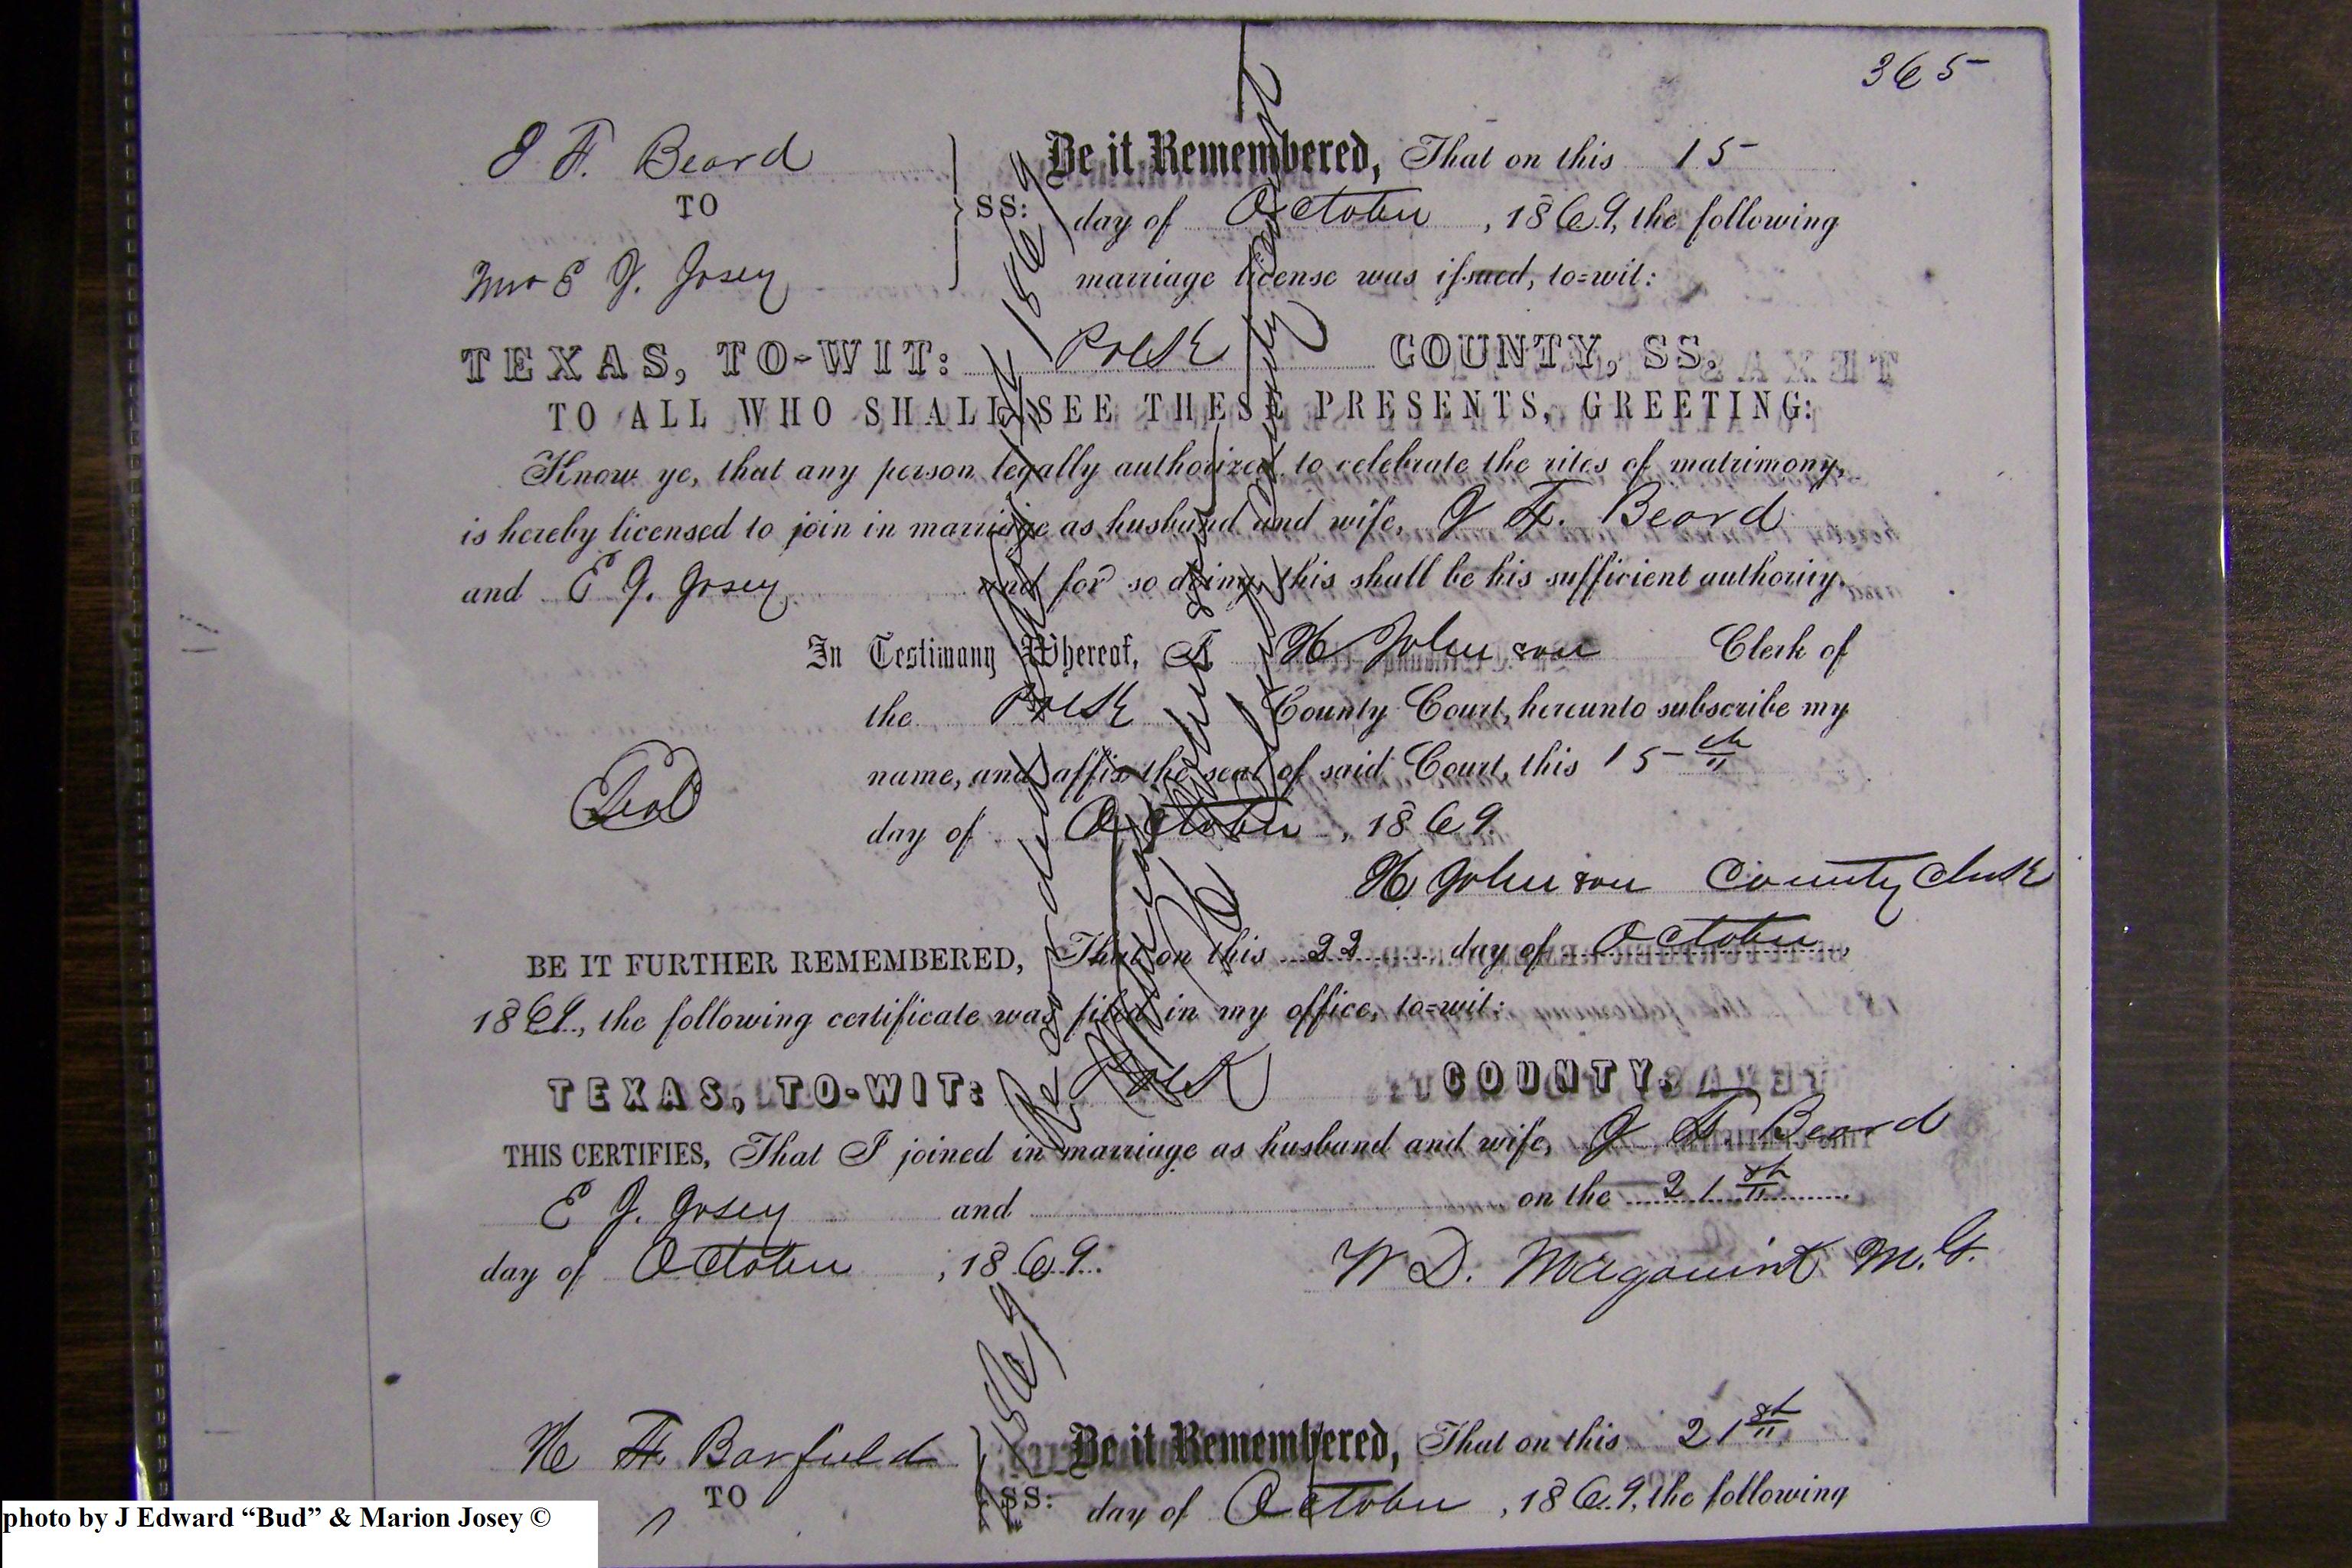 365
J F. Beard
TO
Mrs E J. Josey
SS:
Be it Remembered, That on this 15
day of October, 1869, the following
marriage license was issued, to=wit:
TEXAS, TO-WIT: Polk COUNTY, SS.
TO ALL WHO SHALL SEE THESE PRESENTS, GREETING:
Know ye, that any person legally authorized to celebrate the rites of matrimony,
is hereby licensed to join in marriage as husband and wife, J F. Beard
and E J. Josey and for so doing, this shall be his sufficient authority.
In Testimony Whereof, I H Johnson Clerk of
the Polk County Court, hereunto subscribe my
name, and affix the seal of said Court, this 15th
Seal
day of October, 1869.
H Johnson County Clerk
BE IT FURTHER REMEMBERED, That on this 22 day of October
1869, the following certificate was filed in my office, to=wit:
TEXAS, TO-WIT: Polk COUNTY.
THIS CERTIFIES, That I joined in marriage as husband and wife, J F. Beard
E J. Josey and on the 21st
day of October, 1869.
W D. M.G.
Recorded 1869
H F. Barfield
TO
SS:
1869
Be it Remembered, That on this 21st
day of October, 1869, the following
photo by J Edward “Bud” & Marion Josey ©